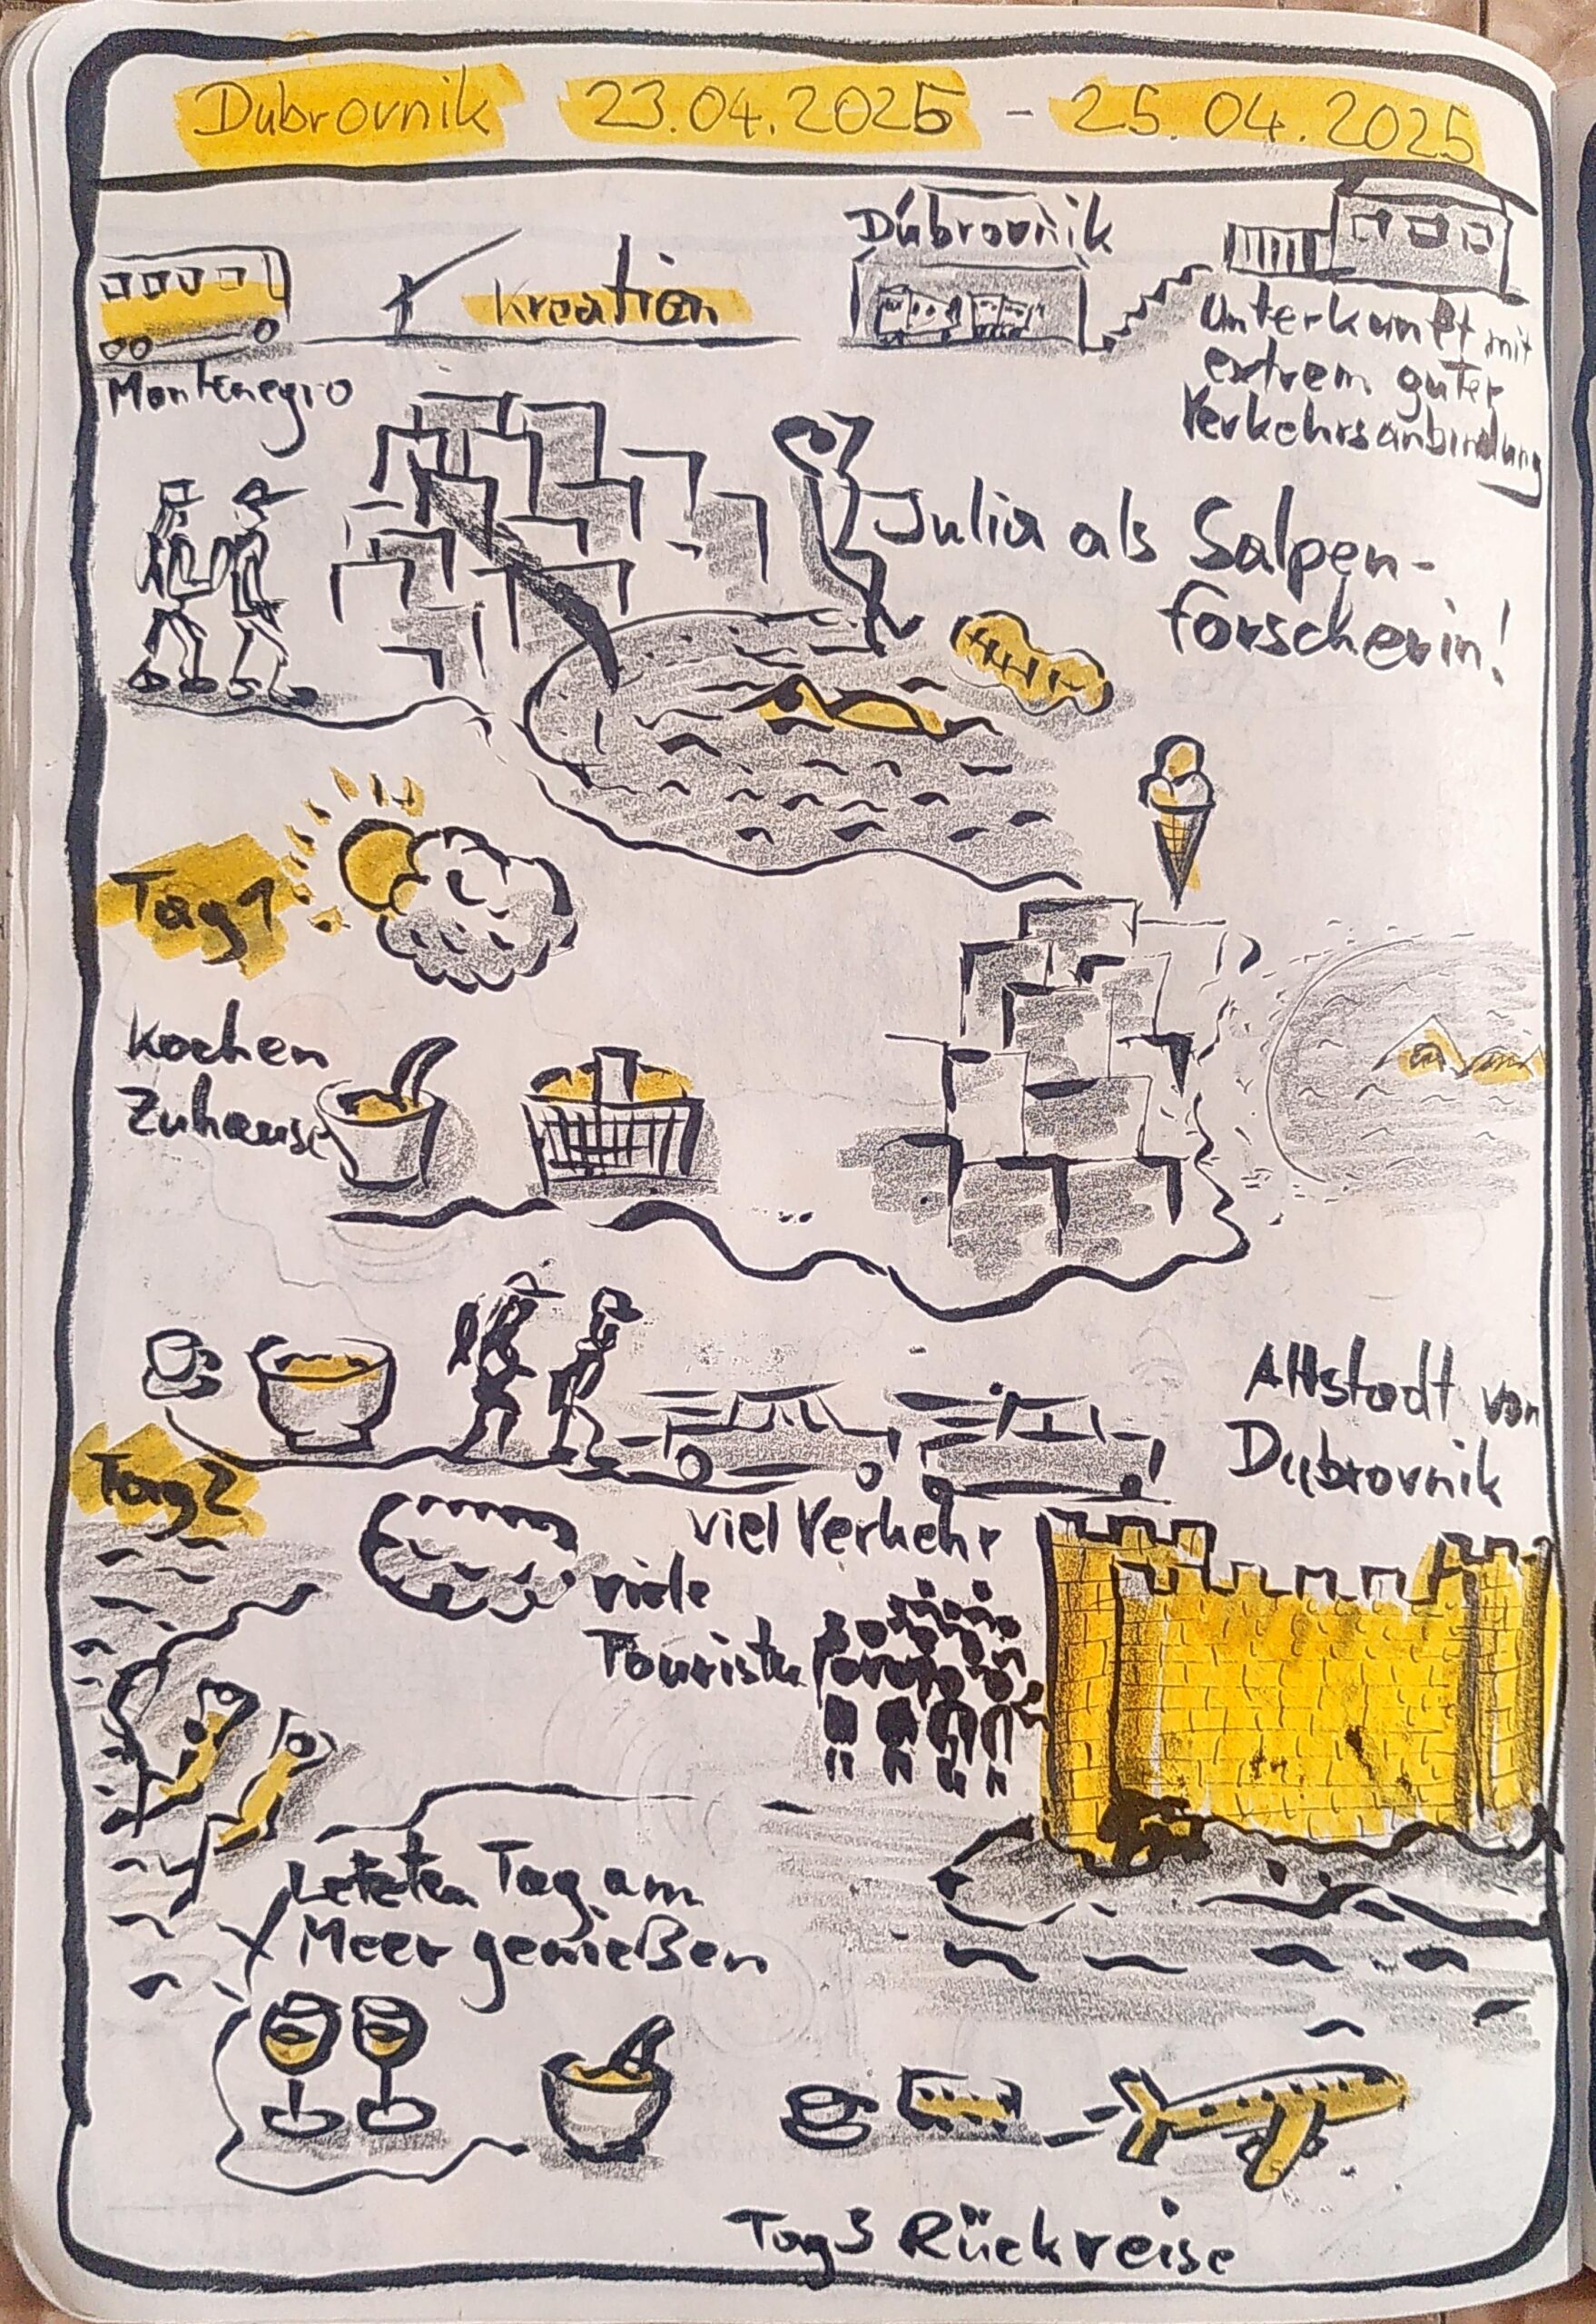 Dubrovnik 23.04.2025 - 25.04.2025
Montenegro
Kroatien
Dubrovnik
Unterkunft mit
extrem guter
Verkehrsanbindung
Julia als Salpen-
forscherin!
Tag 1
Kochen
Zuhause
Tag 2
viel Verkehr
viele
Touristen
Altstadt von
Dubrovnik
Letzten Tag am
Meer genießen
Tag 3 Rückreise